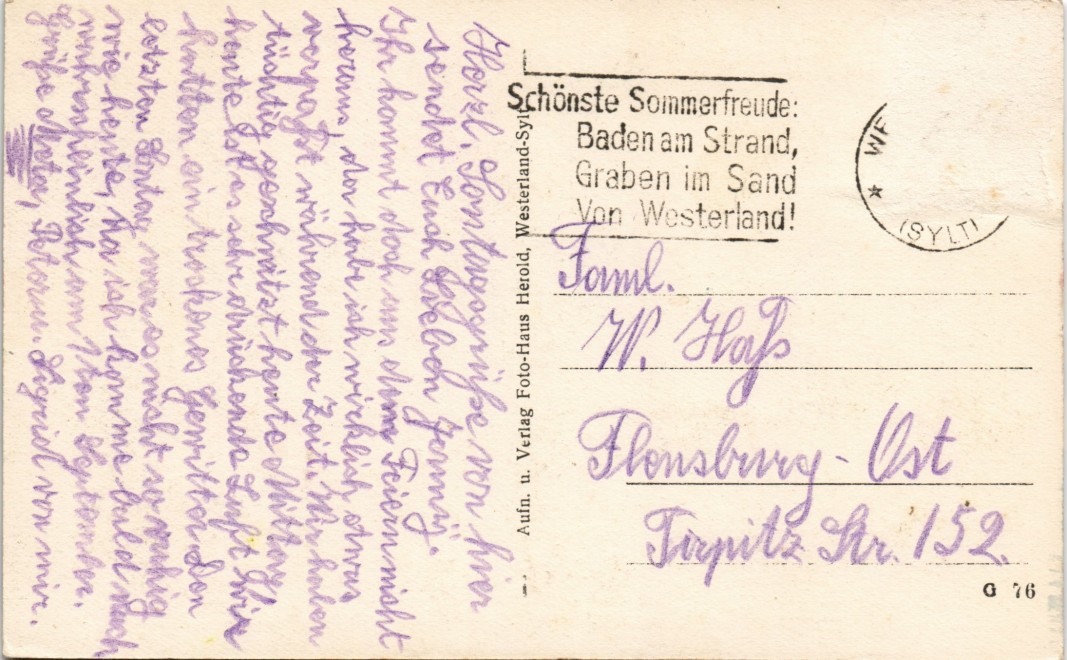 Herzl. Sontagsgrüße von hier
sendet Euch Liebch Jennig.
Ihr kommt doch um dum Feiern nicht
herum, da habe ich wirklich etwas
verpaßt während der Zeit. Wir haben
tüchtig geschwitzt heute Mittag
heute ist er sehr drückende Luft. Wir
hatten ein trockenes Gewitter. Den
letzten Sontag war es nicht so ruhig
wie heute, na ich komme bald nach
wahrscheinlich am 1ten September.
Grüße Meta, Peter u. Sigrid von mir.
Aufn. u. Verlag Foto-Haus Herold, Westerland-Sylt
Schönste Sommerfreude:
Baden am Strand,
Graben im Sand
Von Westerland!
* WE
(SYLT)
Faml.
W. Haß
Flensburg-Ost
Tirpitz Str. 152.
G 76